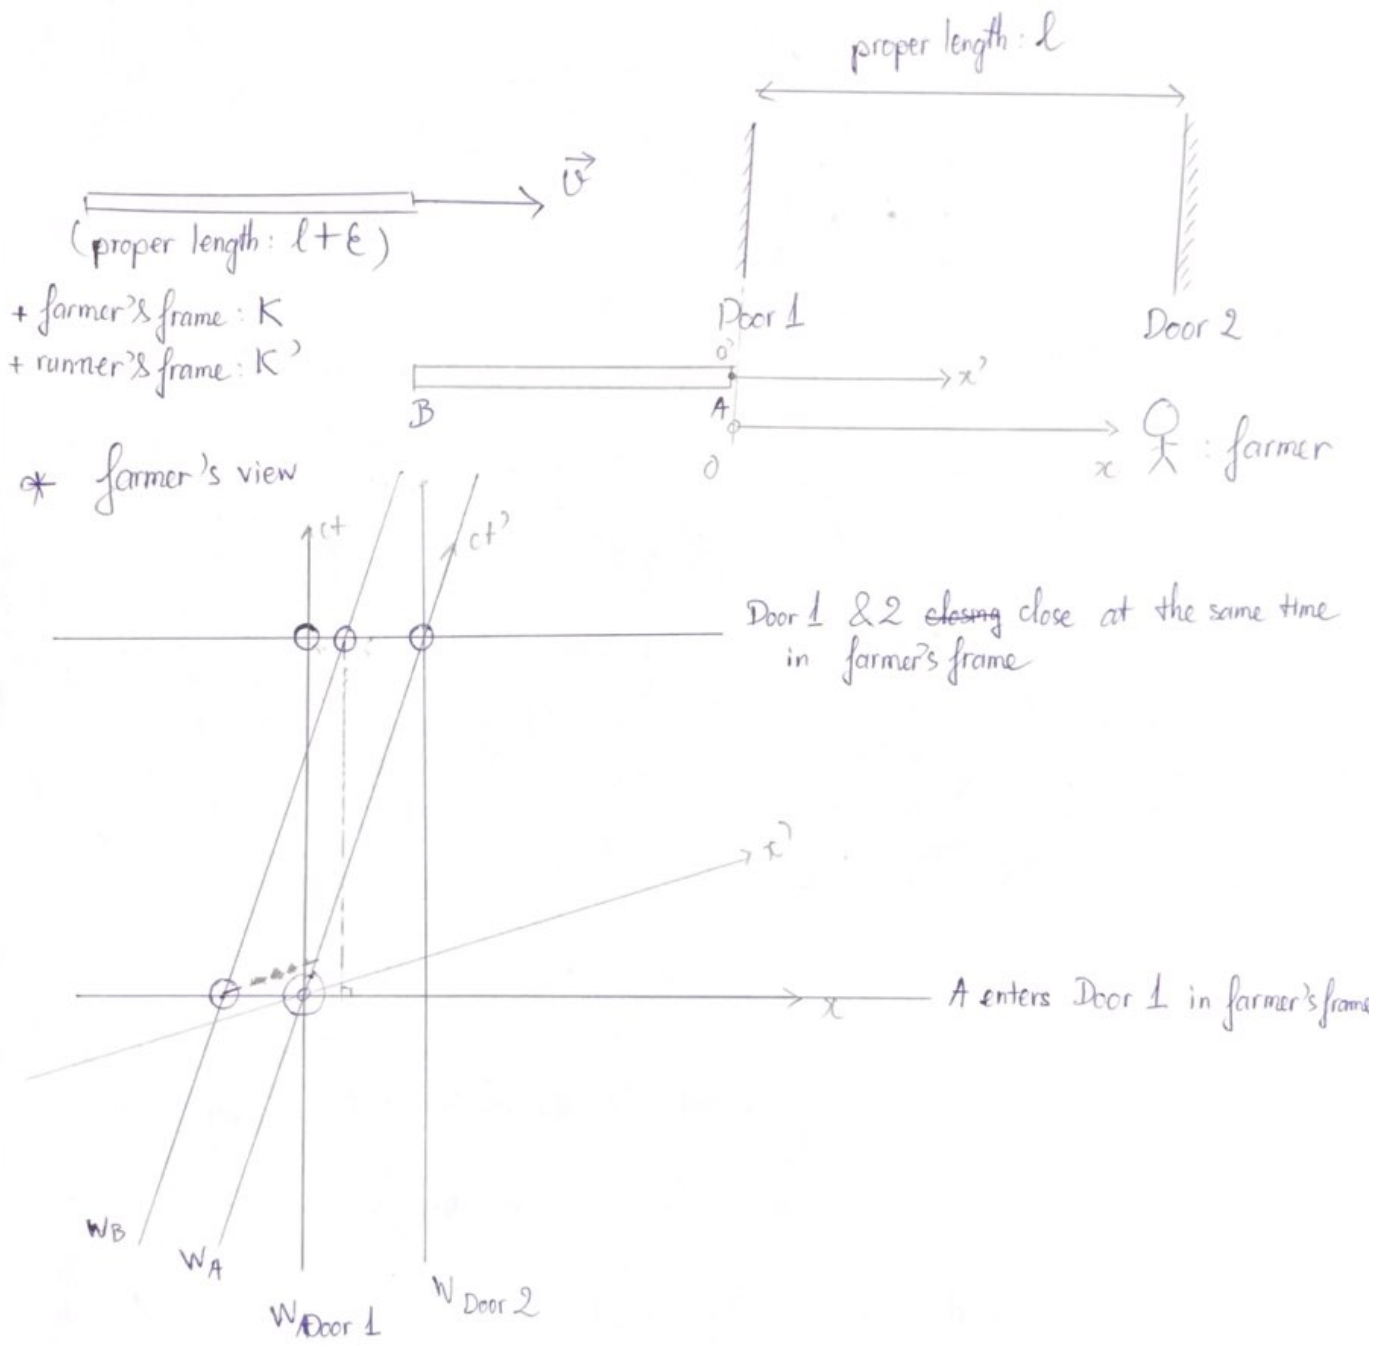 proper length: l
v
(proper length: l+ε)
+ farmer's frame: K
+ runner's frame: K'
Door 1
Door 2
O'
x'
B
A
O
x
: farmer
* farmer's view
ct
ct'
Door 1 & 2 closing close at the same time
in farmer's frame
x'
x
A enters Door 1 in farmer's frame
WB
WA
WDoor 1
WDoor 2